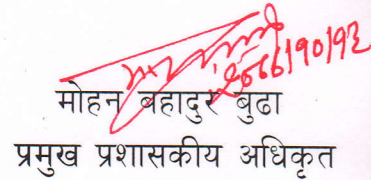 २०७७।१०।१३
मोहन बहादुर बुढा
प्रमुख प्रशासकीय अधिकृत